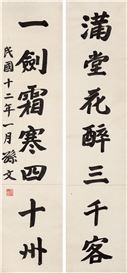 滿堂花醉三千客
一劍霜寒四十州
民國十二年一月 孫文